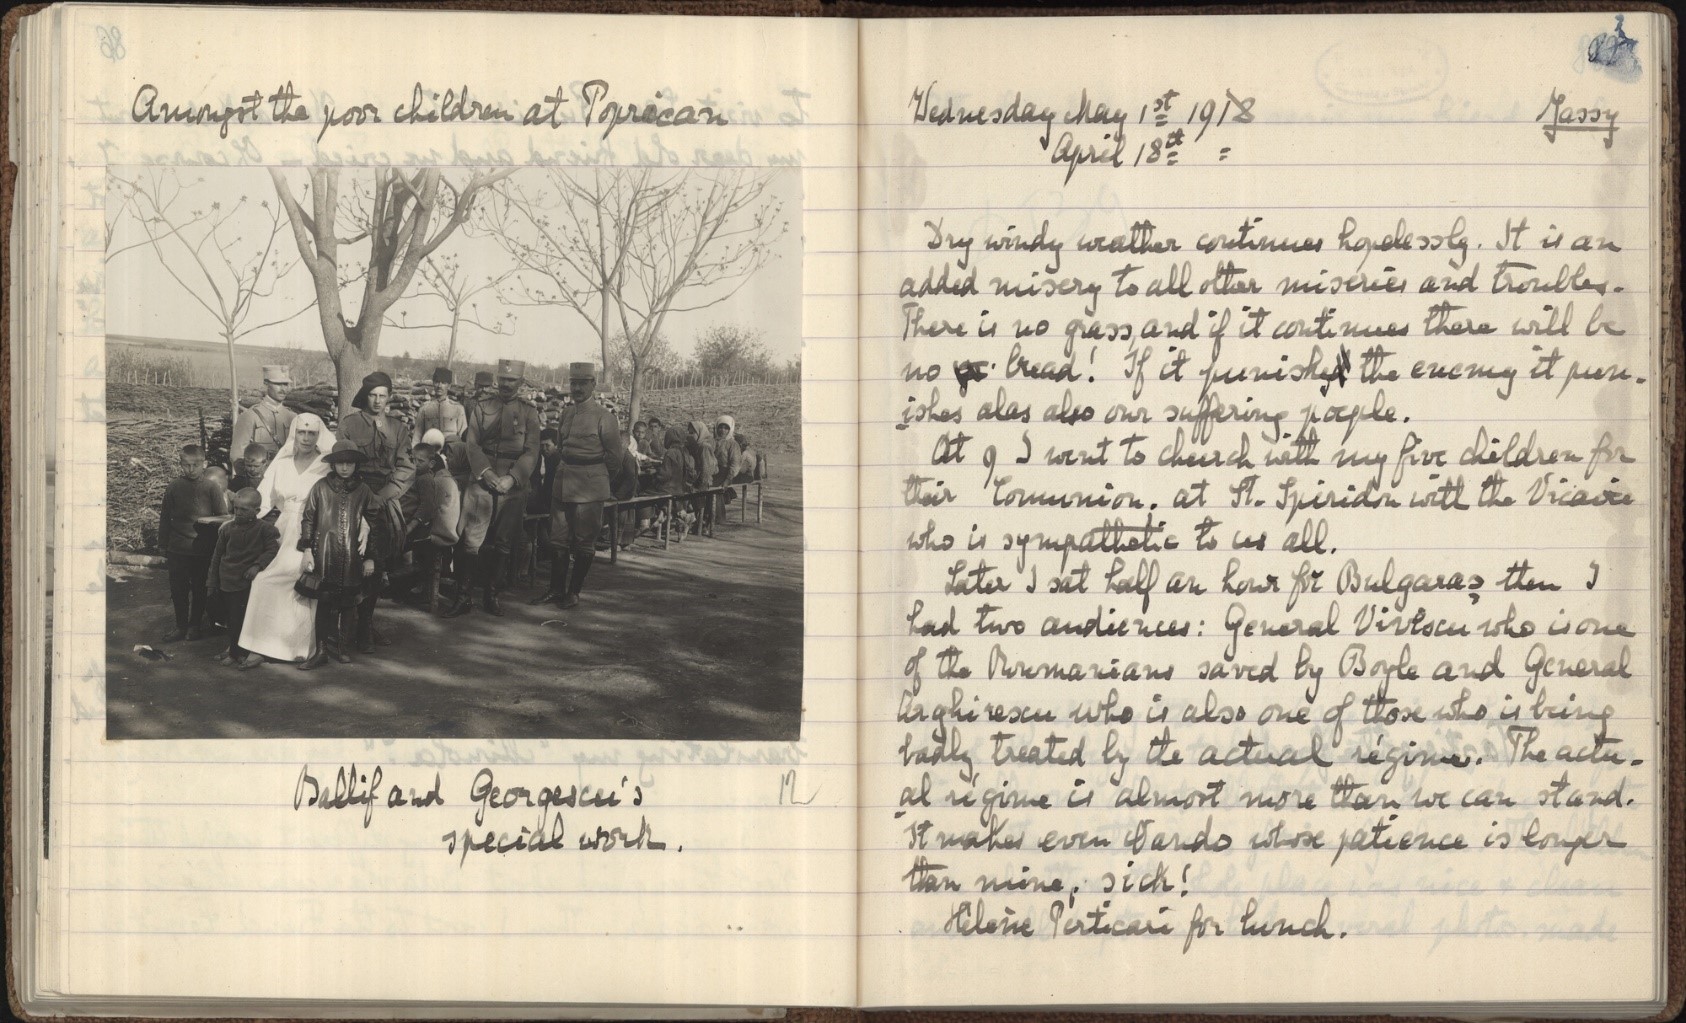 86
Amongst the poor children at Popricani
Ballif and Georgescu's
special work.
12
Wednesday May 1st 1918
Jassy
April 18th =
Dry windy weather continues hopelessly. It is an
added misery to all other miseries and troubles.
There is no grass, and if it continues there will be
no bread! If it punishes the enemy it pun-
ishes alas also our suffering people.
At 9 I went to church with my five children for
their Comunion. at St. Spiridon with the Vicaire
who is sympathetic to us all.
Later I sat half an hour for Bulgaras, then I
had two audiences: General Vivescu who is one
of the Roumanians saved by Boyle and General
Arghirescu who is also one of those who is being
badly treated by the actual régime. The actu-
al régime is almost more than we can stand.
It makes even Nando whose patience is longer
than mine, sick!
Hélène Perticari for lunch.